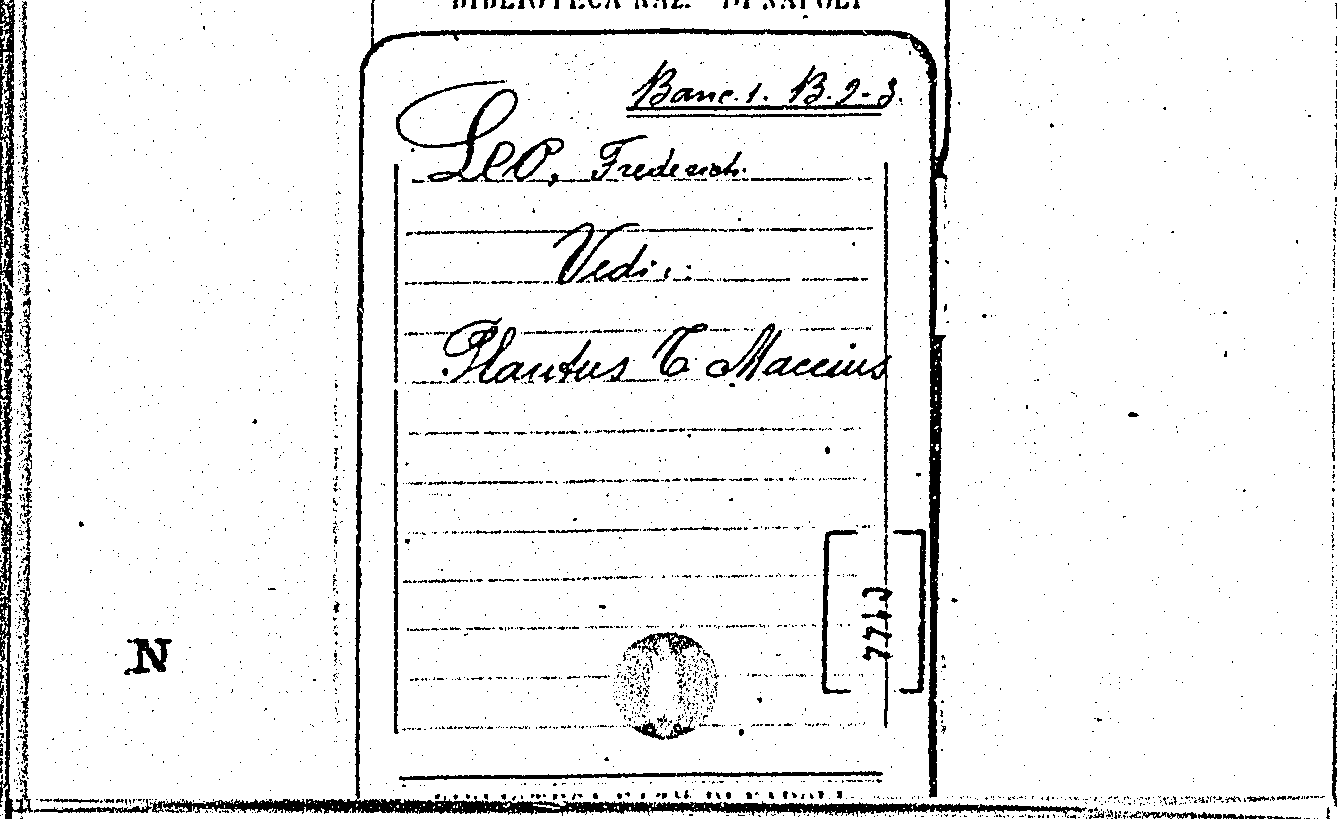 BIBLIOTECA NAZ. DI NAPOLI
Banc. 1. B. 2-3.
Leo, Frederich.
Vedi:
Plautus T. Maccius
N